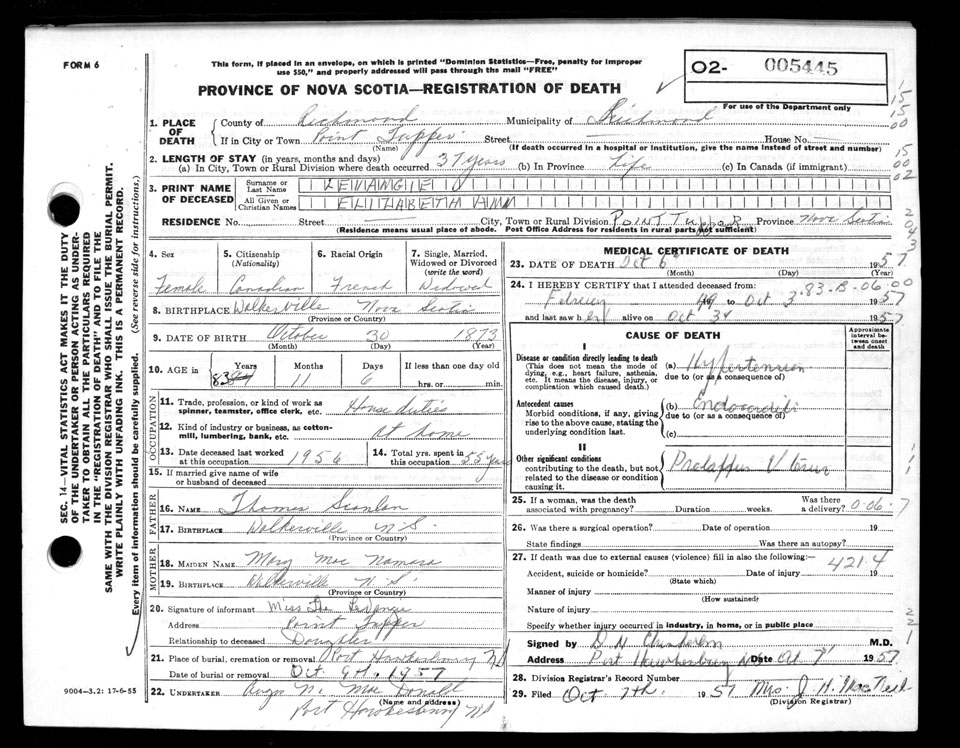 FORM 6
This form, if placed in an envelope, on which is printed "Dominion Statistics—Free, penalty for improper
use $50," and properly addressed will pass through the mail "FREE"
O2- 005445
For use of the Department only
PROVINCE OF NOVA SCOTIA—REGISTRATION OF DEATH
1. PLACE OF DEATH
County of Richmond Municipality of Richmond
If in City or Town Point Tupper Street House No.
(Name) (If death occurred in a hospital or institution, give the name instead of street and number)
2. LENGTH OF STAY (in years, months and days)
(a) In City, Town or Rural Division where death occurred 37 years (b) In Province Life (c) In Canada (if immigrant)
3. PRINT NAME OF DECEASED
Surname or Last Name
All Given or Christian Names ELIZABETH ANN
RESIDENCE No. Street City, Town or Rural Division POINT Tupper Province Nova Scotia
(Residence means usual place of abode. Post Office Address for residents in rural parts not sufficient)
4. Sex
Female
5. Citizenship
(Nationality)
Canadian
6. Racial Origin
French
7. Single, Married, Widowed or Divorced
(write the word)
Widowed
8. BIRTHPLACE Walkerville Nova Scotia
(Province or Country)
9. DATE OF BIRTH October 30 1873
(Month) (Day) (Year)
10. AGE in
Years Months Days If less than one day old
83 11 6 hrs. or min.
OCCUPATION
11. Trade, profession, or kind of work as
spinner, teamster, office clerk, etc. House duties
12. Kind of industry or business, as cotton-
mill, lumbering, bank, etc. at home
13. Date deceased last worked
at this occupation 1956
14. Total yrs. spent in
this occupation 55 years
15. If married give name of wife
or husband of deceased
FATHER
16. NAME Thomas Scanlan
17. BIRTHPLACE Walkerville N.S.
(Province or Country)
MOTHER
18. MAIDEN NAME Mary Mac Namara
19. BIRTHPLACE Walkerville N.S.
(Province or Country)
20. Signature of informant Miss
Address Point Tupper
Relationship to deceased Daughter
21. Place of burial, cremation or removal Port Hawkesbury NS
Date of burial or removal Oct. 9th. 1957
22. UNDERTAKER Angus N. Mac Donald
(Name and address)
Port Hawkesbury NS
9004—3.2: 17-6-55
SEC. 14—VITAL STATISTICS ACT MAKES IT THE DUTY
OF THE UNDERTAKER OR PERSON ACTING AS UNDER-
TAKER TO OBTAIN ALL THE PARTICULARS REQUIRED
IN THE "REGISTRATION OF DEATH" AND TO FILE THE
SAME WITH THE DIVISION REGISTRAR WHO SHALL ISSUE THE BURIAL PERMIT.
WRITE PLAINLY WITH UNFADING INK. THIS IS A PERMANENT RECORD.
Every item of information should be carefully supplied. (See reverse side for instructions,)
MEDICAL CERTIFICATE OF DEATH
23. DATE OF DEATH Oct 6 1957
(Month) (Day) (Year)
24. I HEREBY CERTIFY that I attended deceased from: 83-B-06.00
49 to Oct 3 1957
and last saw her alive on Oct 3 1957
CAUSE OF DEATH
Approximate interval between onset and death
I
Disease or condition directly leading to death
(This does not mean the mode of
dying, e.g., heart failure, asthenia,
etc. It means the disease, injury, or
complication which caused death.)
(a) Hypertension
due to (or as a consequence of)
Antecedent causes
Morbid conditions, if any, giving
rise to the above cause, stating the
underlying condition last.
(b) Endocarditis
due to (or as a consequence of)
(c)
II
Other significant conditions
contributing to the death, but not
related to the disease or condition
causing it.
Prolapsus Uterus
25. If a woman, was the death
associated with pregnancy? Duration weeks. Was there
a delivery? 0.06.7
26. Was there a surgical operation? Date of operation 19
State findings Was there an autopsy?
27. If death was due to external causes (violence) fill in also the following:
421.4
Accident, suicide or homicide? Date of injury 19
(State which)
Manner of injury
(How sustained)
Nature of injury
Specify whether injury occurred in industry, in home, or in public place
Signed by M.D.
Address Port Hawkesbury Date Oct 7 1957
28. Division Registrar's Record Number
29. Filed Oct 7th. 1957 Mrs. J. H. MacNeil
(Division Registrar)